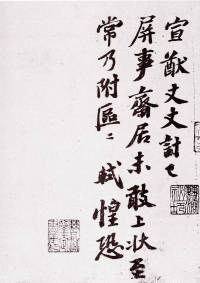 宣猷丈丈計已
屏事齋居未敢上状至
常乃附區〻軾惶恐